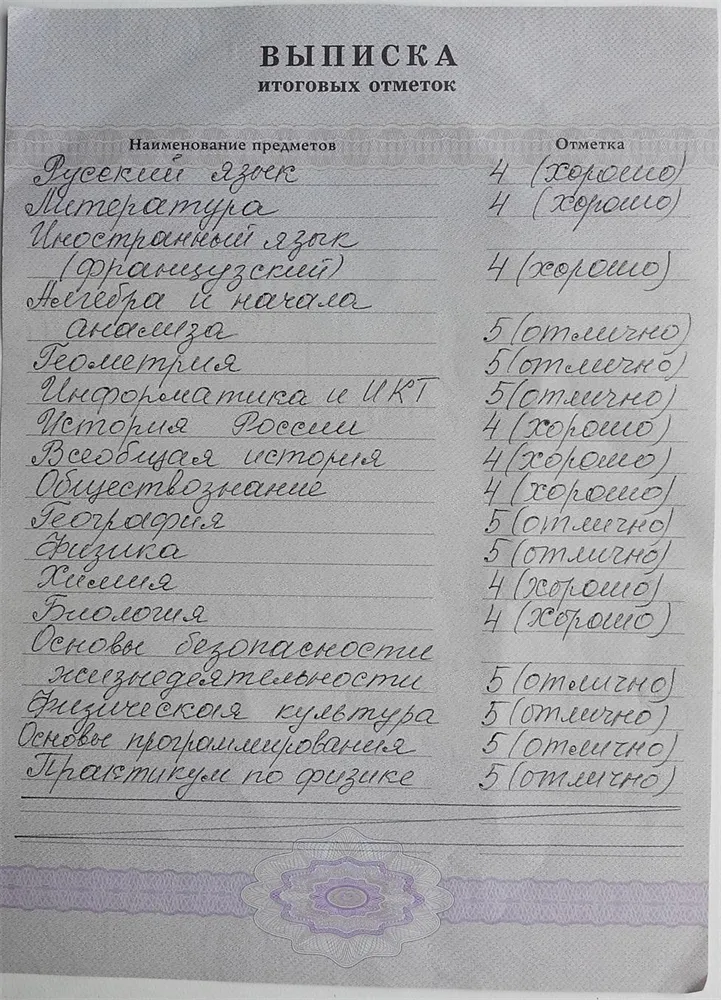 ВЫПИСКА
итоговых отметок
Наименование предметов Отметка
Русский язык 4 (хорошо)
Литература 4 (хорошо)
Иностранный язык
(французский) 4 (хорошо)
Алгебра и начала
анализа 5 (отлично)
Геометрия 5 (отлично)
Информатика и ИКТ 5 (отлично)
История России 4 (хорошо)
Всеобщая история 4 (хорошо)
Обществознание 4 (хорошо)
География 5 (отлично)
Физика 5 (отлично)
Химия 4 (хорошо)
Биология 4 (хорошо)
Основы безопасности
жизнедеятельности 5 (отлично)
Физическая культура 5 (отлично)
Основы программирования 5 (отлично)
Практикум по физике 5 (отлично)